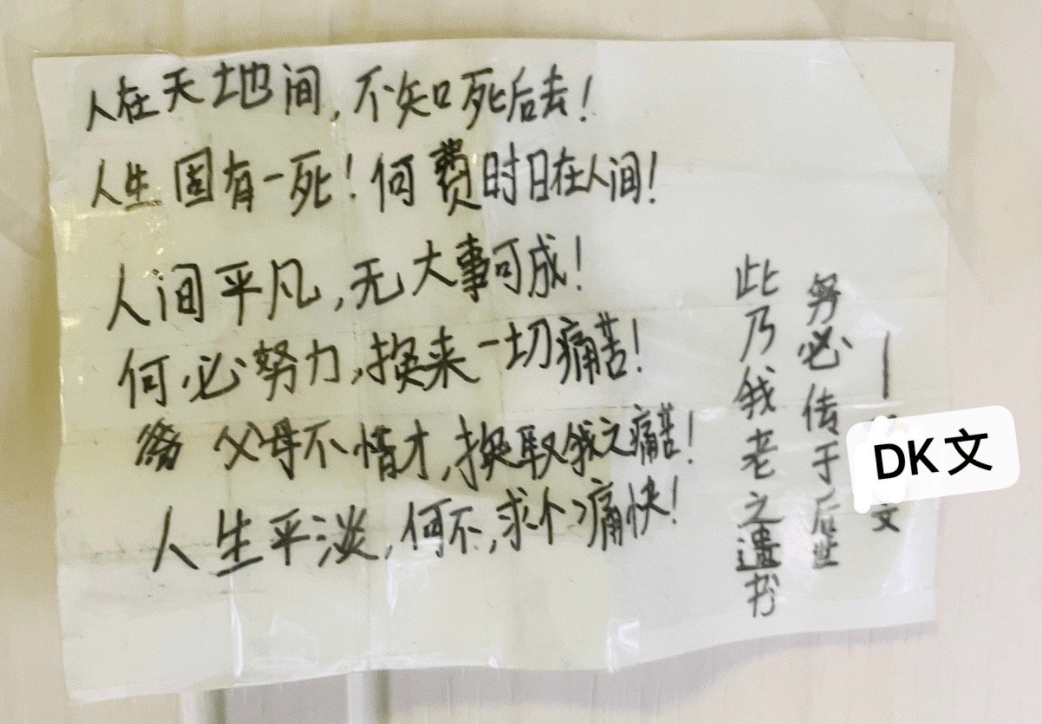 人在天地间，不知死后去！
人生固有一死！何费时日在人间！
人间平凡，无大事可成！
何必努力，换来一切痛苦！
父母不惜才，换取我之痛苦！
人生平淡，何不，求个痛快！
此乃我老之遗书
务必传于后世
—
文
DK文